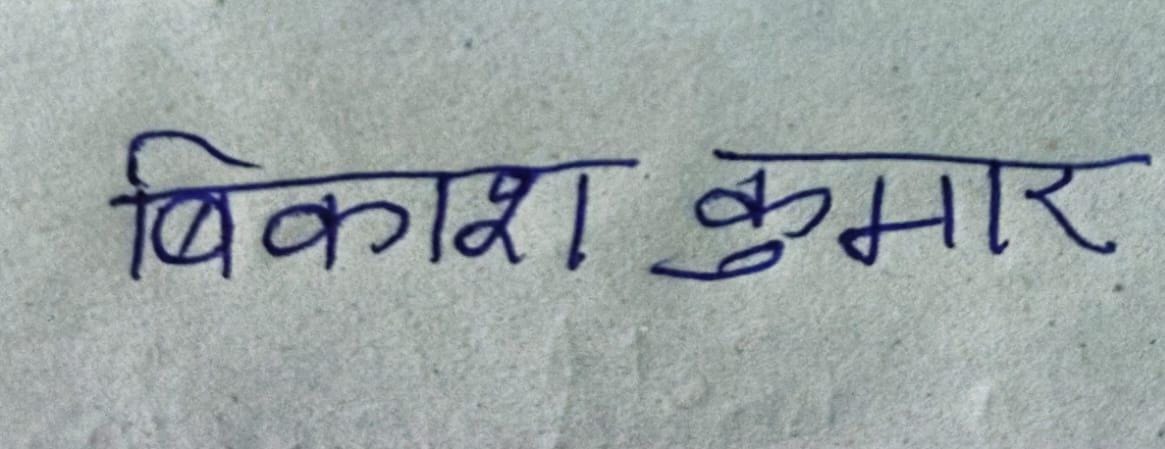 बिकाश कुमार